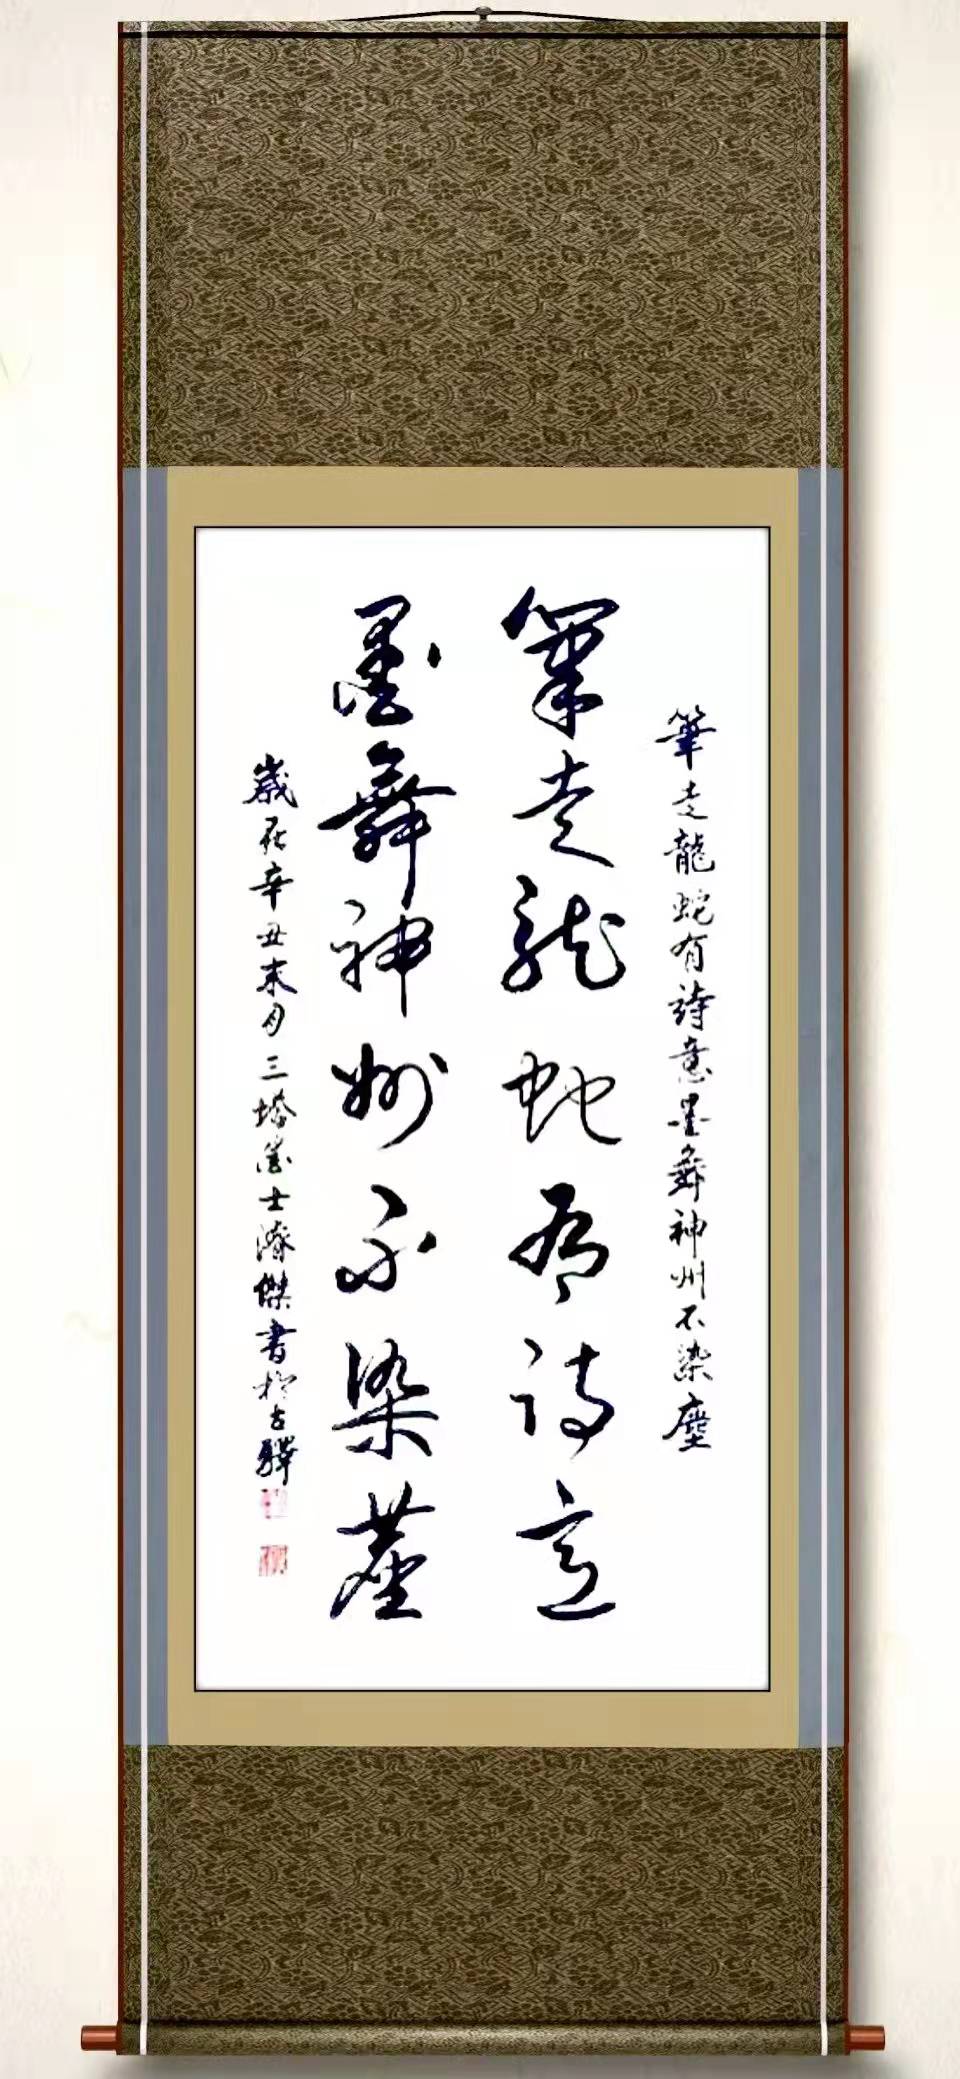 筆走龍蛇有詩意墨舞神州不染塵
筆走龍蛇有詩意
墨舞神州不染塵
歲在辛丑末月三塔居士濤傑書於古驛